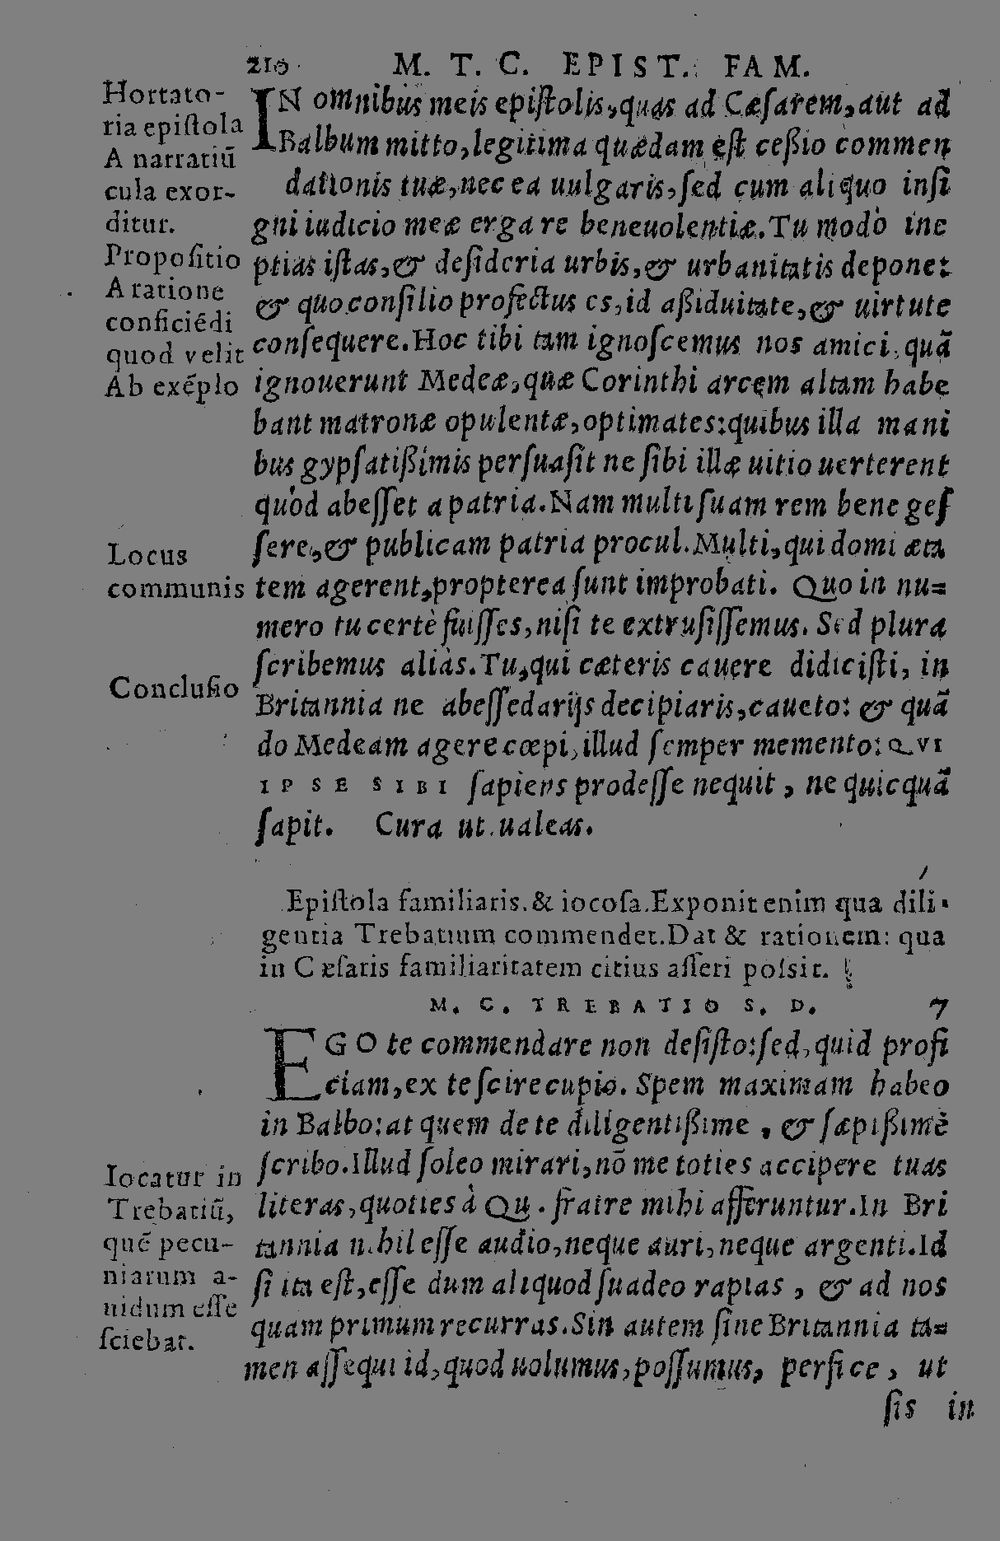 210 M. T. C. EPIST. FAM.
Hortato-
ria epiſtola
A narratiū
cula exor-
ditur.
Propoſitio
A ratione
conficiēdi
quod velit
Ab exēplo
IN omnibus meis epiſtolis, quas ad Cæſarem, aut ad
Balbum mitto, legitima quædam eſt ceßio commen
dationis tuæ, nec ea uulgaris, ſed cum aliquo inſi
gni iudicio meæ erga te beneuolentiæ. Tu modò ine
ptias iſtas, & deſideria urbis, & urbanitatis depone:
& quo conſilio profectus es, id aßiduitate, & uirtute
conſequere. Hoc tibi tam ignoſcemus nos amici, quā
ignouerunt Medeæ, quæ Corinthi arcem altam habe
bant matronæ opulentæ, optimates: quibus illa mani
bus gypſatißimis perſuaſit ne ſibi illæ uitio uerterent
quòd abeſſet a patria. Nam multi ſuam rem bene geſ
ſere, & publicam patria procul. Multi, qui domi æta
Locus
communis
tem agerent, propterea ſunt improbati. Quo in nu=
mero tu certè fuiſſes, niſi te extruſiſſemus. Sed plura
ſcribemus aliàs. Tu, qui cæteris cauere didiciſti, in
Concluſio
Britannia ne abeſſedarijs decipiaris, caueto: & quā
do Medeam agere cœpi, illud ſemper memento: QVI
IPSE SIBI ſapiens prodeſſe nequit, ne quicquā
ſapit. Cura ut ualeas.
Epiſtola familiaris. & iocoſa. Exponit enim qua dili-
gentia Trebatium commendet. Dat & rationem: qua
in Cæſaris familiaritatem citius aſſeri poſsit.
M. C. TREBATIO S. D. 7
EGO te commendare non deſiſto: ſed, quid profi
ciam, ex te ſcire cupio. Spem maximam habeo
in Balbo: at quem de te diligentißime, & ſæpißimè
ſcribo. Illud ſoleo mirari, nō me toties accipere tuas
Iocatur in
Trebatiū,
quē pecu-
niarum a-
uidum eſſe
ſciebat.
literas, quoties à Qu. fratre mihi afferuntur. In Bri
tannia nihil eſſe audio, neque auri, neque argenti. Id
ſi ita eſt, eſſe dum aliquod ſuadeo rapias, & ad nos
quam primum recurras. Sin autem ſine Britannia ta=
men aſſequi id, quod uolumus, poſſumus, perfice, ut
ſis in